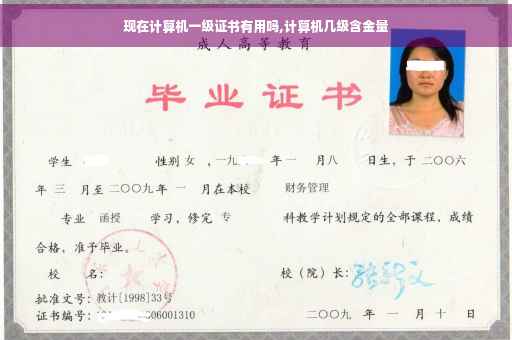 现在计算机一级证书有用吗,计算机几级含金量
成人高等教育
毕业证书
学生 性别 女 ,一九 年一 月八 日生，于二〇〇六
年 三 月至二〇〇九年 一 月在本校 财务管理
专业 函授 学习，修完 专 科教学计划规定的全部课程，成绩
合格，准予毕业。
校 名： 校（院）长：
批准文号：教计[1998]33号
证书编号： 06001310 二〇〇九 年 一 月 十 日